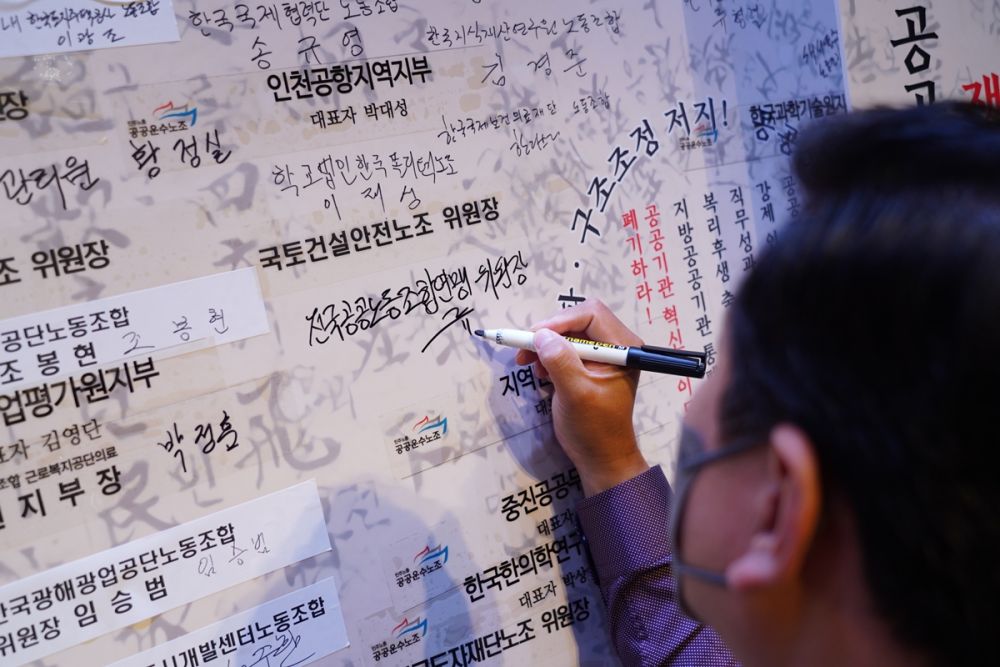 내
이광조
한국국제협력단 노동조합
송규영
한국지식재산연구원 노동조합
김경준
인천공항지역지부
대표자 박대성
원장
공공운수노조
황정실
관리원
학교법인한국폴리텍노조
이재성
한국국제보건의료재단 노동조합
국토건설안전노조 위원장
조 위원장
전국공공노동조합연맹 위원장
공단노동조합
조봉현 조봉현
업평가원지부
표자 김영단
조합 근로복지공단의료
지부장
박정흠
한국광해광업공단노동조합
위원장 임승범
임승범
시개발센터노동조합
공공운수노조
지역
대
중진공공
대표자
공공운수노조
한국한의학연구
대표자 박상
공공운수노조
도자재단노조 위원장
구조조정 저지!
공공운수노조
한국과학기술원지
공공
재
강제
직무성과
복리후생 축
지방공공기관 통
공공기관 혁신
폐기하라!
namepen